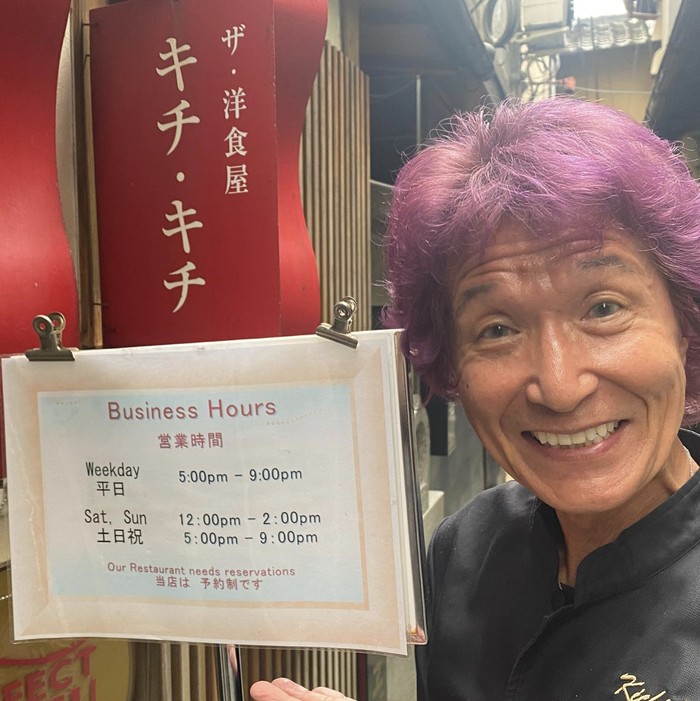 ザ・洋食屋
キチ・キチ
Business Hours
営業時間
Weekday 5:00pm – 9:00pm
平日
Sat, Sun 12:00pm – 2:00pm
土日祝 5:00pm – 9:00pm
Our Restaurant needs reservations
当店は 予約制です